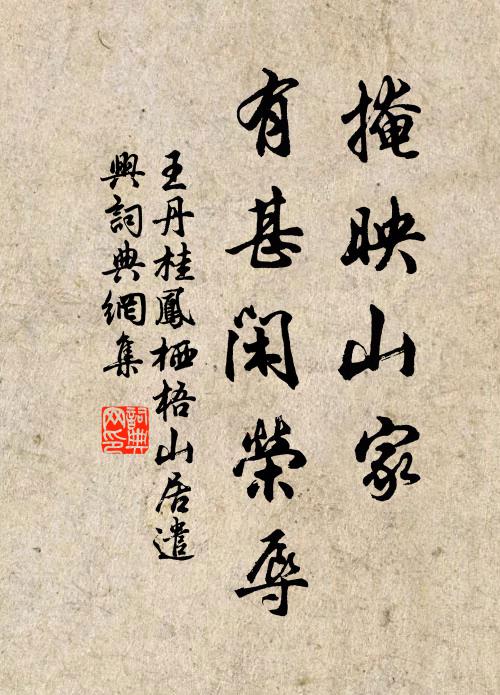 掩映山家
有甚閑榮辱
王丹桂鳳栖梧山居遣
興詞典網集
詞典網印